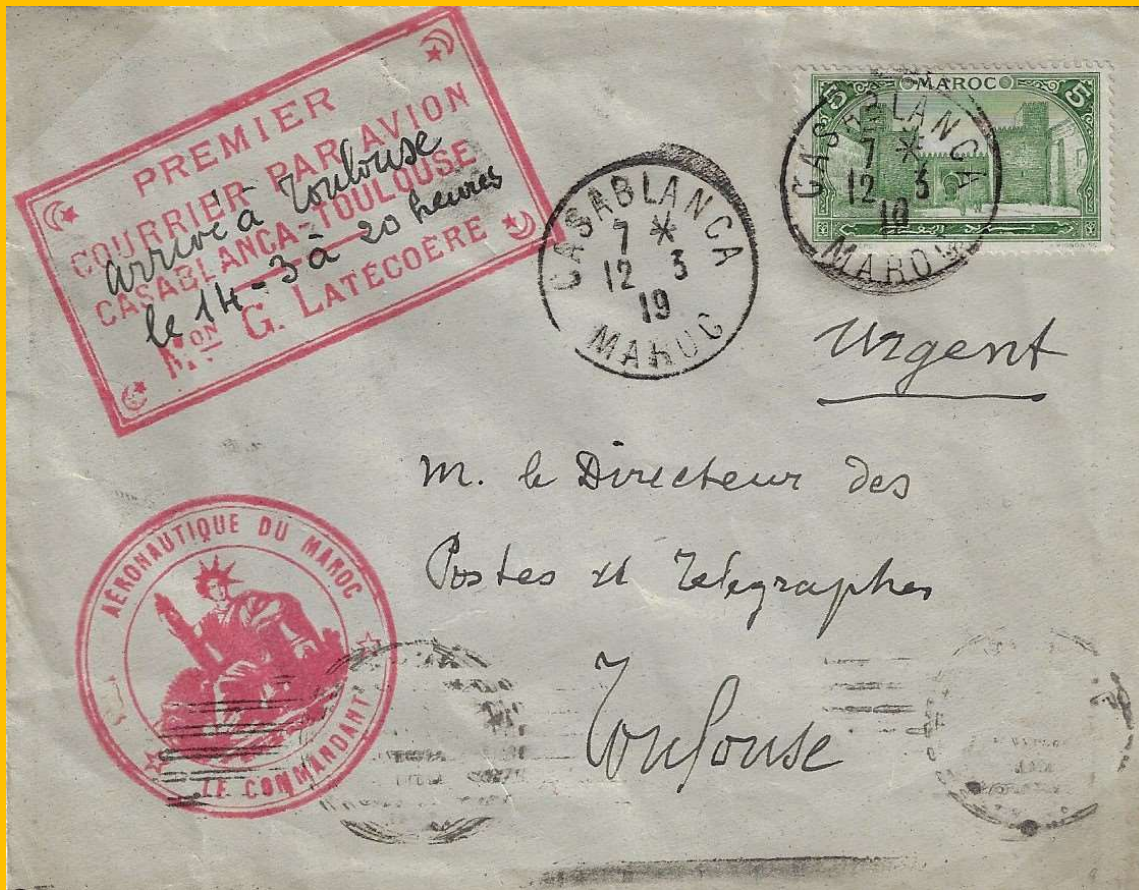 PREMIER
COURRIER PAR AVION
CASABLANCA-TOULOUSE
Mon G. LATECOERE
arrivé à Toulouse
le 14-3 à 20 heures
CASABLANCA
7 *
12 3
19
MAROC
5 MAROC 5
CASABLANCA
7 *
12 3
19
MAROC
Urgent
M. le Directeur des
Postes et Telegraphes
Toulouse
AÉRONAUTIQUE DU MAROC
LE COMMANDANT